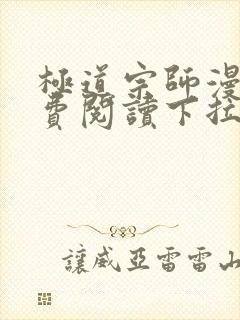 極道宗師漫
費閱讀下拉
讓威亞雷雷山